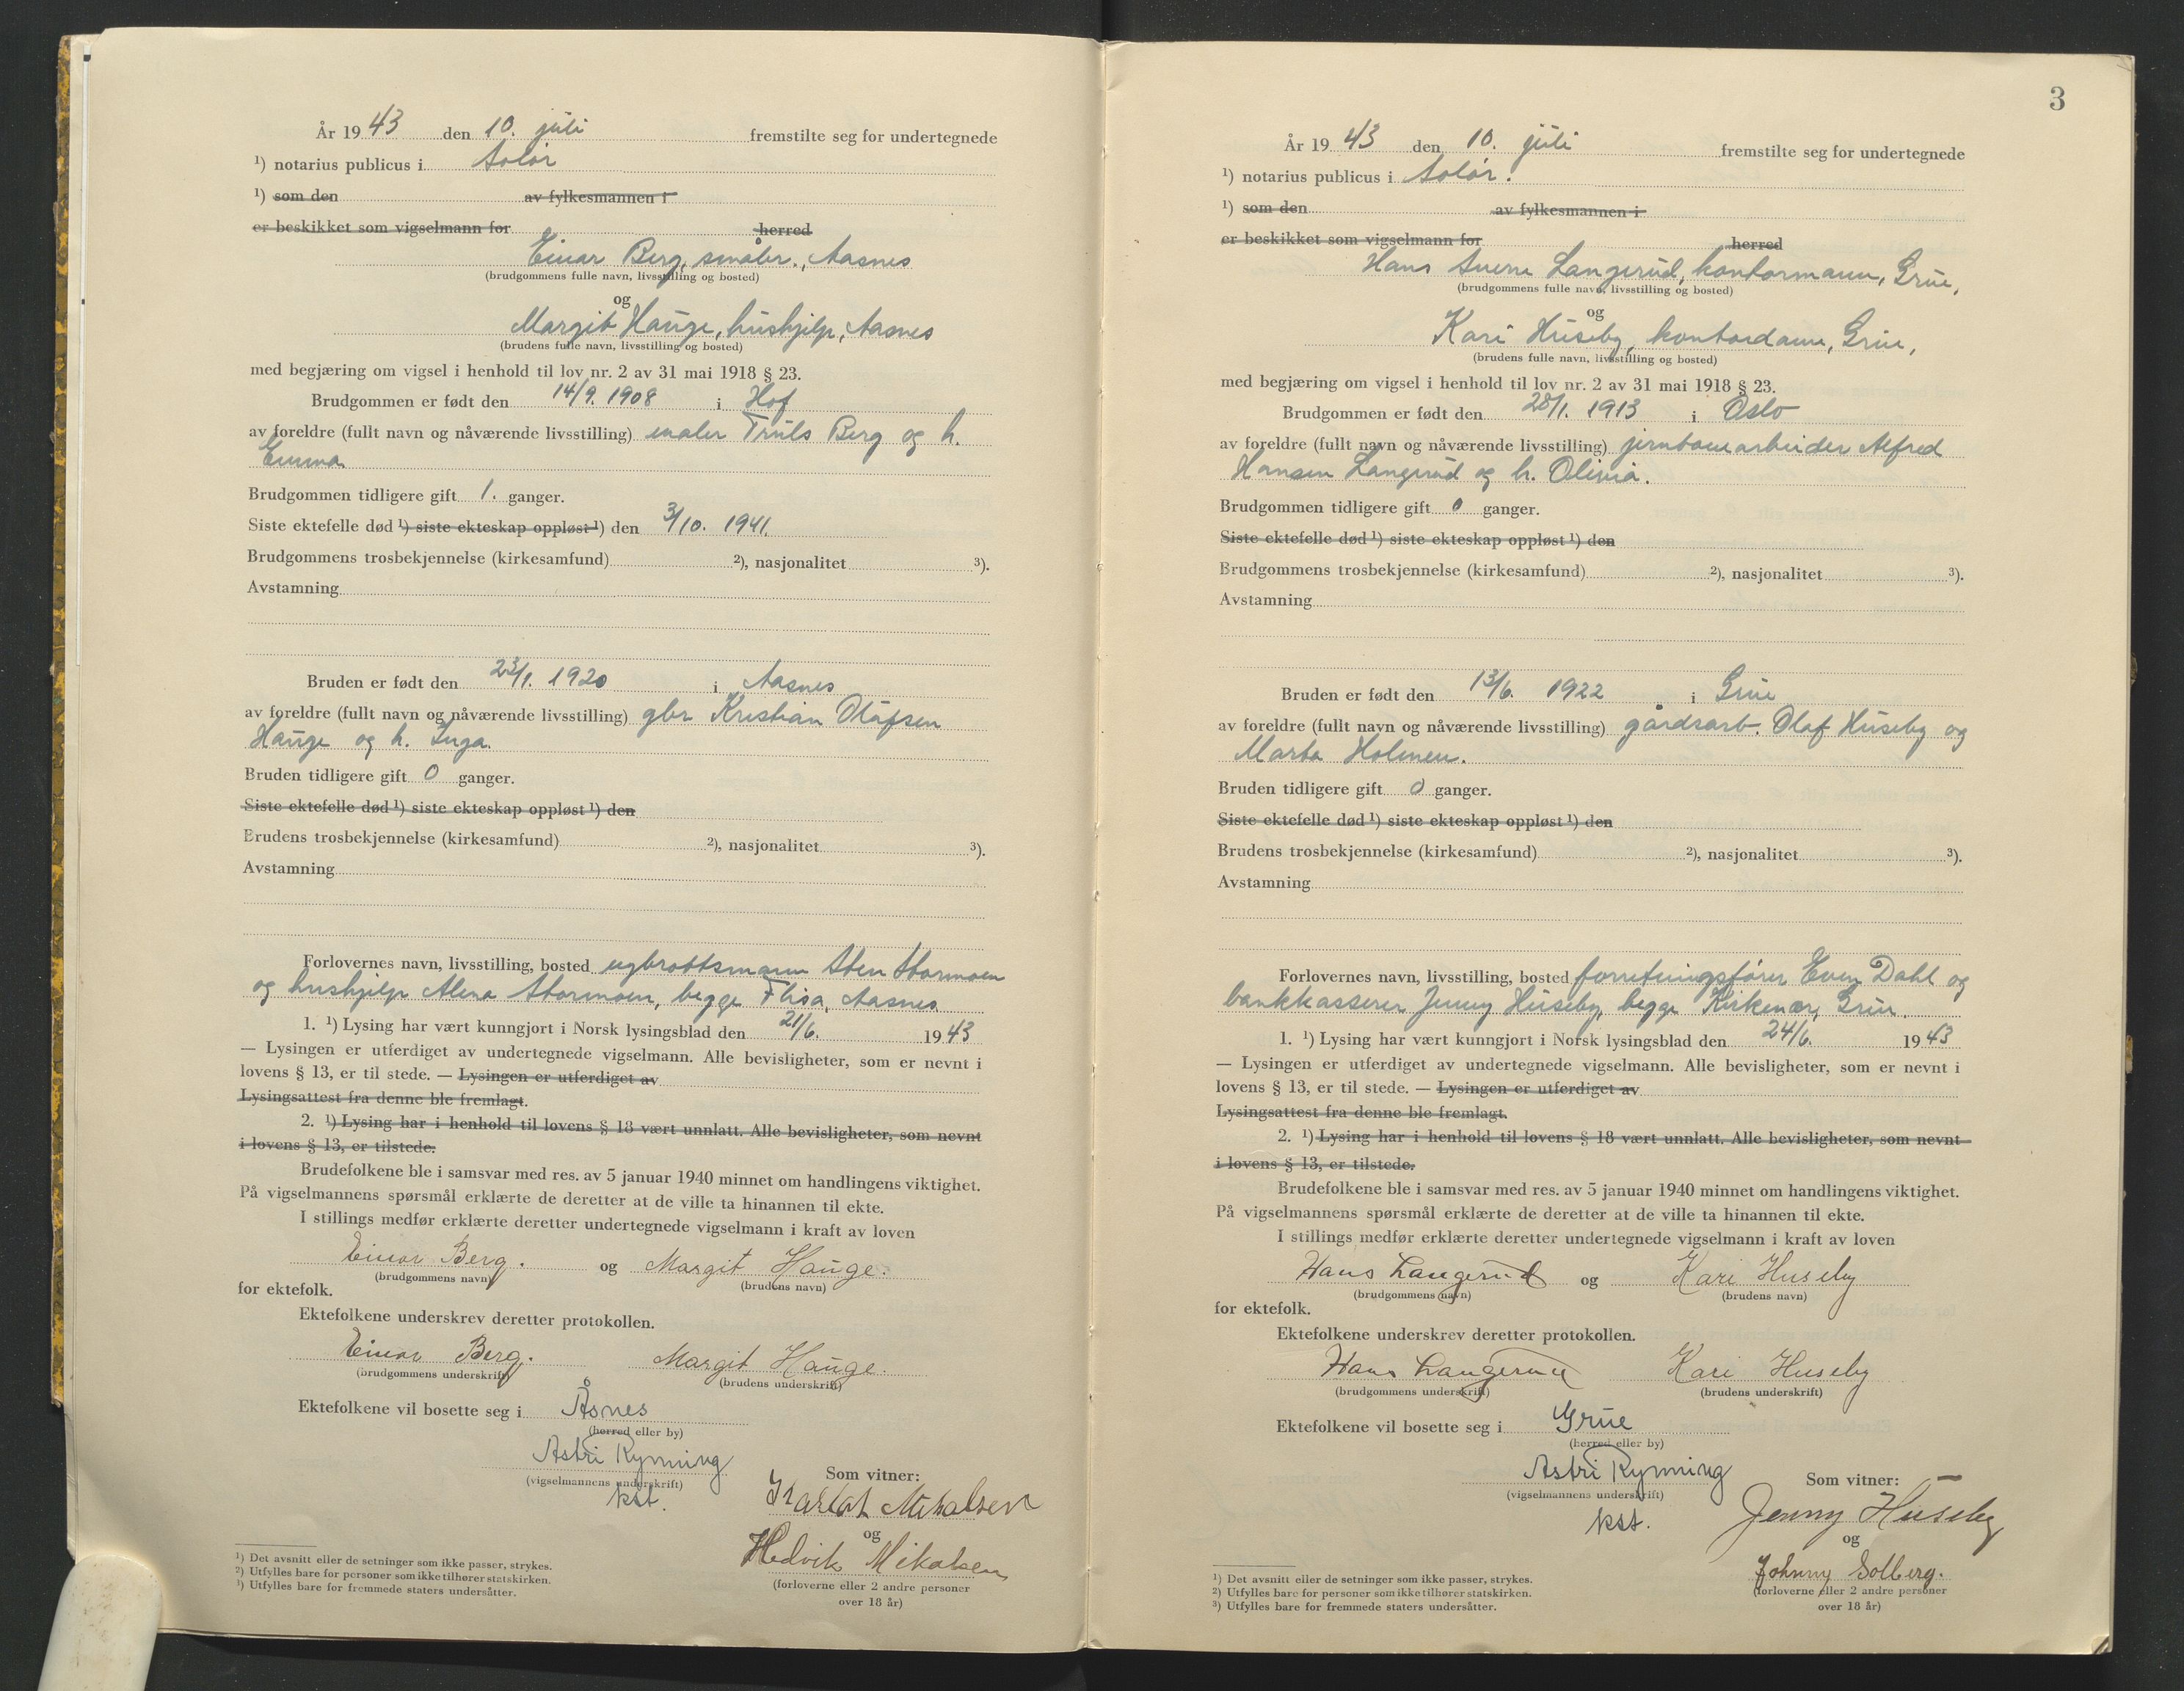 År 19 43 den 10. juli fremstilte seg for undertegnede
¹) notarius publicus i Solør
¹) som den av fylkesmannen i
er beskikket som vigselmann for herred
Einar Berg, småbr., Aasnes
(brudgommens fulle navn, livsstilling og bosted)
og
Margit Hauge, hushjelp, Aasnes
(brudens fulle navn, livsstilling og bosted)
med begjæring om vigsel i henhold til lov nr. 2 av 31 mai 1918 § 23.
Brudgommen er født den 14/9. 1908 i Hof
av foreldre (fullt navn og nåværende livsstilling) maler Truls Berg og h.
Emma
Brudgommen tidligere gift 1. ganger.
Siste ektefelle død ¹) siste ekteskap oppløst ¹) den 3/10. 1941.
Brudgommens trosbekjennelse (kirkesamfund) ²), nasjonalitet ³).
Avstamning
Bruden er født den 23/1. 1920 i Aasnes
av foreldre (fullt navn og nåværende livsstilling) gbr Kristian Olafsen
Hauge og h. Inga.
Bruden tidligere gift 0 ganger.
Siste ektefelle død ¹) siste ekteskap oppløst ¹) den
Brudens trosbekjennelse (kirkesamfund) ²), nasjonalitet ³).
Avstamning
Forlovernes navn, livsstilling, bosted nybrottsmann Sten Stormoen
og hushjelp Alena Stormoen, begge Flisa, Aasnes
1. ¹) Lysing har vært kunngjort i Norsk lysingsblad den 21/6. 19 43
— Lysingen er utferdiget av undertegnede vigselmann. Alle bevisligheter, som er nevnt i
lovens § 13, er til stede. — Lysingen er utferdiget av
Lysingsattest fra denne ble fremlagt.
2. ¹) Lysing har i henhold til lovens § 18 vært unnlatt. Alle bevisligheter, som nevnt
i lovens § 13, er tilstede.
Brudefolkene ble i samsvar med res. av 5 januar 1940 minnet om handlingens viktighet.
På vigselmannens spørsmål erklærte de deretter at de ville ta hinannen til ekte.
I stillings medfør erklærte deretter undertegnede vigselmann i kraft av loven
Einar Berg. og Margit Hauge.
(brudgommens navn) (brudens navn)
for ektefolk.
Ektefolkene underskrev deretter protokollen.
Einar Berg. Margit Hauge.
(brudgommens underskrift) (brudens underskrift)
Ektefolkene vil bosette seg i Åsnes
(herred eller by)
Astri Rynning
(vigselmannens underskrift)
kst.
Som vitner:
Mikalsen
og
Hedvik Mikalsen
(forloverne eller 2 andre personer
over 18 år)
¹) Det avsnitt eller de setninger som ikke passer, strykes.
²) Utfylles bare for personer som ikke tilhører statskirken.
³) Utfylles bare for fremmede staters undersåtter.
3
År 19 43 den 10. juli fremstilte seg for undertegnede
¹) notarius publicus i Solør.
¹) som den av fylkesmannen i
er beskikket som vigselmann for herred
Hans Sverre Langerud, kontormann, Grue,
(brudgommens fulle navn, livsstilling og bosted)
og
Kari Huseby, kontordame, Grue,
(brudens fulle navn, livsstilling og bosted)
med begjæring om vigsel i henhold til lov nr. 2 av 31 mai 1918 § 23.
Brudgommen er født den 28/1. 1913 i Oslo
av foreldre (fullt navn og nåværende livsstilling) jernbanearbeider Alfred
Hansen Langerud og h. Olivia.
Brudgommen tidligere gift 0 ganger.
Siste ektefelle død ¹) siste ekteskap oppløst ¹) den
Brudgommens trosbekjennelse (kirkesamfund) ²), nasjonalitet ³).
Avstamning
Bruden er født den 13/6. 1922 i Grue
av foreldre (fullt navn og nåværende livsstilling) gårdsarb. Olaf Huseby og
Marta Holmen.
Bruden tidligere gift 0 ganger.
Siste ektefelle død ¹) siste ekteskap oppløst ¹) den
Brudens trosbekjennelse (kirkesamfund) ²), nasjonalitet ³).
Avstamning
Forlovernes navn, livsstilling, bosted forretningsfører Even Dahl og
bankkasserer Jenny Huseby, begge Kirkenær, Grue.
1. ¹) Lysing har vært kunngjort i Norsk lysingsblad den 24/6. 19 43
— Lysingen er utferdiget av undertegnede vigselmann. Alle bevisligheter, som er nevnt i
lovens § 13, er til stede. — Lysingen er utferdiget av
Lysingsattest fra denne ble fremlagt.
2. ¹) Lysing har i henhold til lovens § 18 vært unnlatt. Alle bevisligheter, som nevnt
i lovens § 13, er tilstede.
Brudefolkene ble i samsvar med res. av 5 januar 1940 minnet om handlingens viktighet.
På vigselmannens spørsmål erklærte de deretter at de ville ta hinannen til ekte.
I stillings medfør erklærte deretter undertegnede vigselmann i kraft av loven
Hans Langerud og Kari Huseby
(brudgommens navn) (brudens navn)
for ektefolk.
Ektefolkene underskrev deretter protokollen.
Hans Langerud Kari Huseby
(brudgommens underskrift) (brudens underskrift)
Ektefolkene vil bosette seg i Grue
(herred eller by)
Astri Rynning
(vigselmannens underskrift)
kst.
Som vitner:
Jenny Huseby
og
Johnny Solberg.
(forloverne eller 2 andre personer
over 18 år)
¹) Det avsnitt eller de setninger som ikke passer, strykes.
²) Utfylles bare for personer som ikke tilhører statskirken.
³) Utfylles bare for fremmede staters undersåtter.